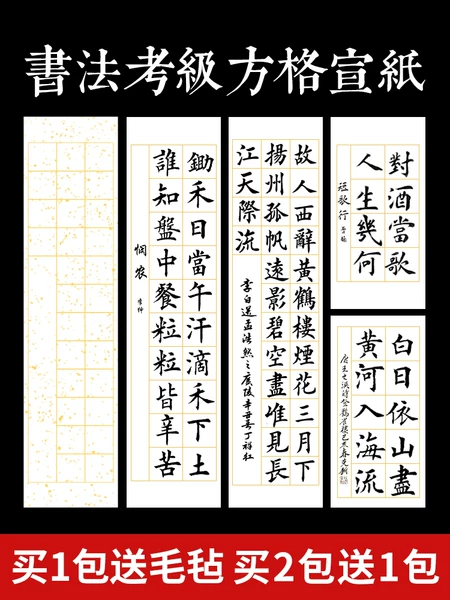 書法考級方格宣紙
鋤禾日當午汗滴禾下土
誰知盤中餐粒粒皆辛苦
憫农 李紳
故人西辭黃鶴樓煙花三月下
揚州孤帆遠影碧空盡唯見長
江天際流
李白送孟浩然之廣陵辛丑春丁祥红
對酒當歌
人生幾何
短歌行 曹操
白日依山盡
黃河入海流
唐王之渙詩登鸛雀樓
买1包送毛毡 买2包送1包